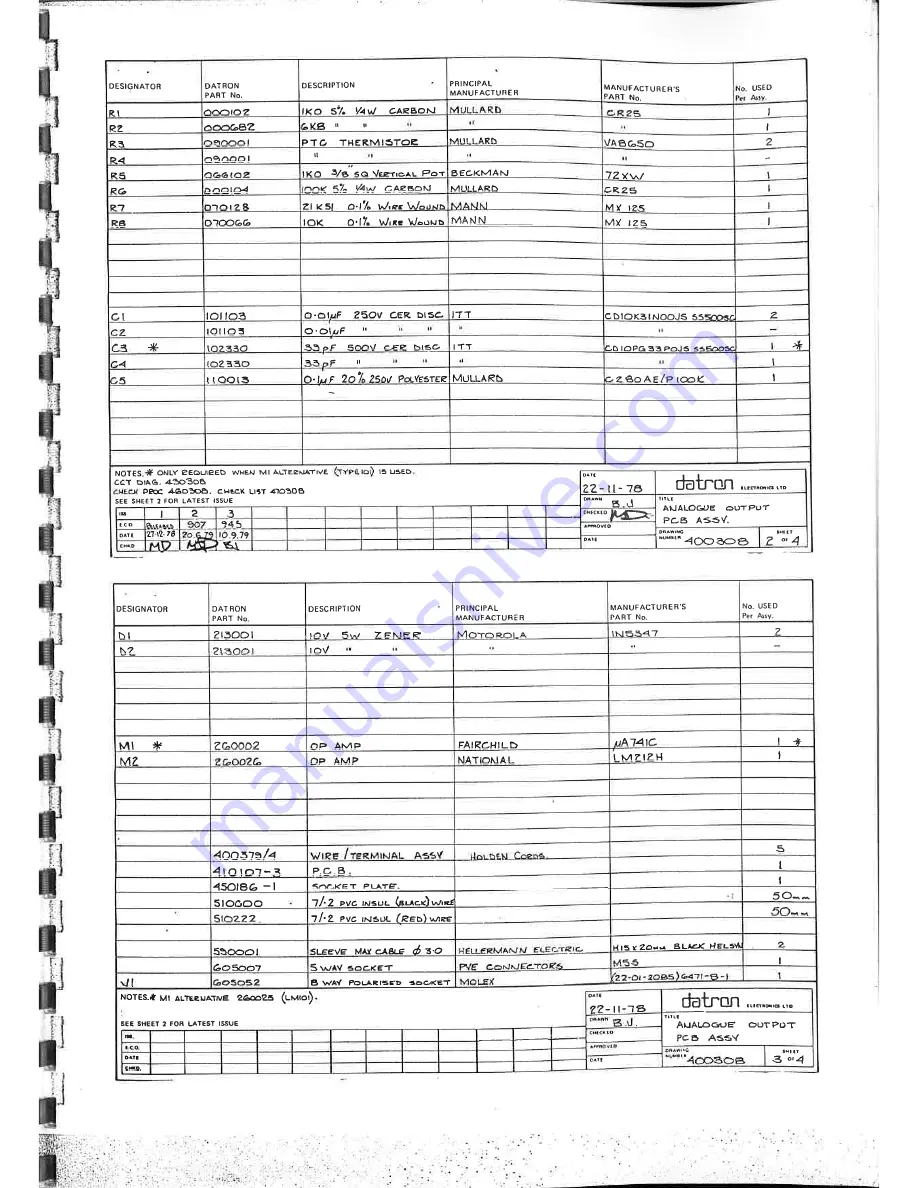 DESIGNATOR DATRON PART No. DESCRIPTION PRINCIPAL MANUFACTURER MANUFACTURER'S PART No. No. USED Per Assy.
R1 000102 1K0 5% 1/4W CARBON MULLARD CR25 1
R2 000682 6K8 " " " " " 1
R3 090001 PTC THERMISTOR MULLARD VA8650 2
R4 090001 " " " " -
R5 066102 1K0 3/8" SQ VERTICAL POT BECKMAN 72XW 1
R6 000104 100K 5% 1/4W CARBON MULLARD CR25 1
R7 070128 21K51 0.1% WIRE WOUND MANN MX 125 1
R8 070066 10K 0.1% WIRE WOUND MANN MX 125 1
C1 101103 0.01µF 250V CER DISC ITT CD10K31N00JS SS500SC 2
C2 101103 0.01µF " " " " " -
C3 * 102330 33pF 500V CER DISC ITT CD10PG33P0JS SS500SC 1 *
C4 102330 33pF " " " " " 1
C5 110013 0.1µF 20% 250V POLYESTER MULLARD C280AE/P100K 1
NOTES.* ONLY REQUIRED WHEN M1 ALTERNATIVE (TYPE 101) IS USED.
CCT DIAG. 430308
CHECK PROC 460308. CHECK LIST 470308
SEE SHEET 2 FOR LATEST ISSUE
ISS 1 2 3
E.C.O. RELEASED 907 945
DATE 27-12-78 20.6.79 10.9.79
CHKD MD MD BJ
DATE 22-11-78
DRAWN B.J
CHECKED MD
APPROVED
DATE
datron ELECTRONICS LTD
TITLE ANALOGUE OUTPUT PCB ASSY.
DRAWING NUMBER 400308 SHEET 2 OF 4
DESIGNATOR DATRON PART No. DESCRIPTION PRINCIPAL MANUFACTURER MANUFACTURER'S PART No. No. USED Per Assy.
D1 213001 10V 5W ZENER MOTOROLA 1N5347 2
D2 213001 10V " " " " -
M1 * 260002 OP AMP FAIRCHILD µA741C 1 *
M2 260026 OP AMP NATIONAL LM212H 1
400379/4 WIRE/TERMINAL ASSY HOLDEN CORDS. 5
410107-3 P.C.B. 1
450186-1 SOCKET PLATE. 1
510600 7/.2 PVC INSUL (BLACK) WIRE 50mm
510222 7/.2 PVC INSUL (RED) WIRE 50mm
590001 SLEEVE MAX CABLE Ø 3.0 HELLERMANN ELECTRIC H15 x 20mm BLACK HELSYN 2
605007 5 WAY SOCKET PYE CONNECTORS M5S 1
605052 8 WAY POLARISED SOCKET MOLEX (22-01-2085) 6471-8-1 1
NOTES.* M1 ALTERNATIVE 260025 (LM101).
SEE SHEET 2 FOR LATEST ISSUE
ISS.
E.C.O.
DATE
CHKD.
DATE 22-11-78
DRAWN B.J.
CHECKED
APPROVED
DATE
datron ELECTRONICS LTD
TITLE ANALOGUE OUTPUT PCB ASSY
DRAWING NUMBER 400308 SHEET 3 OF 4
manualshive.com